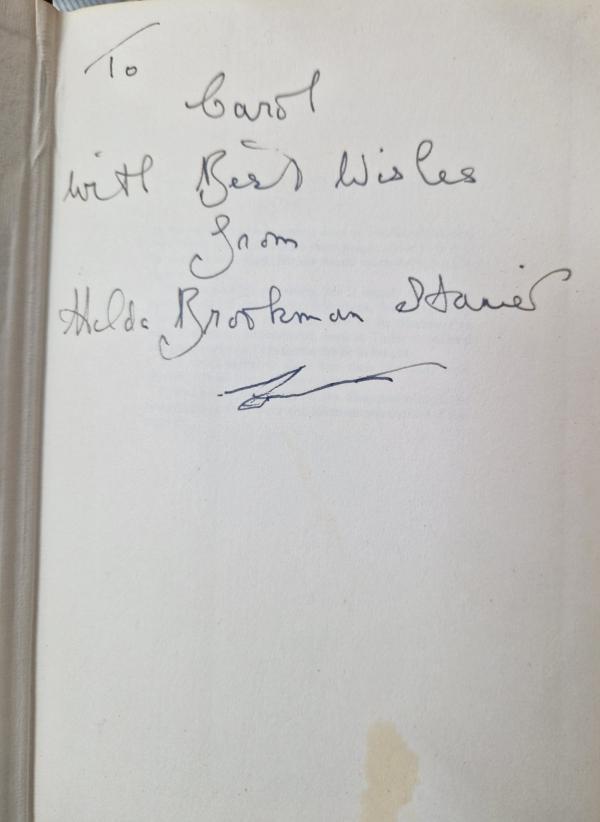 To
Carol
with Best Wishes
from
Hilda Brookman Stanier